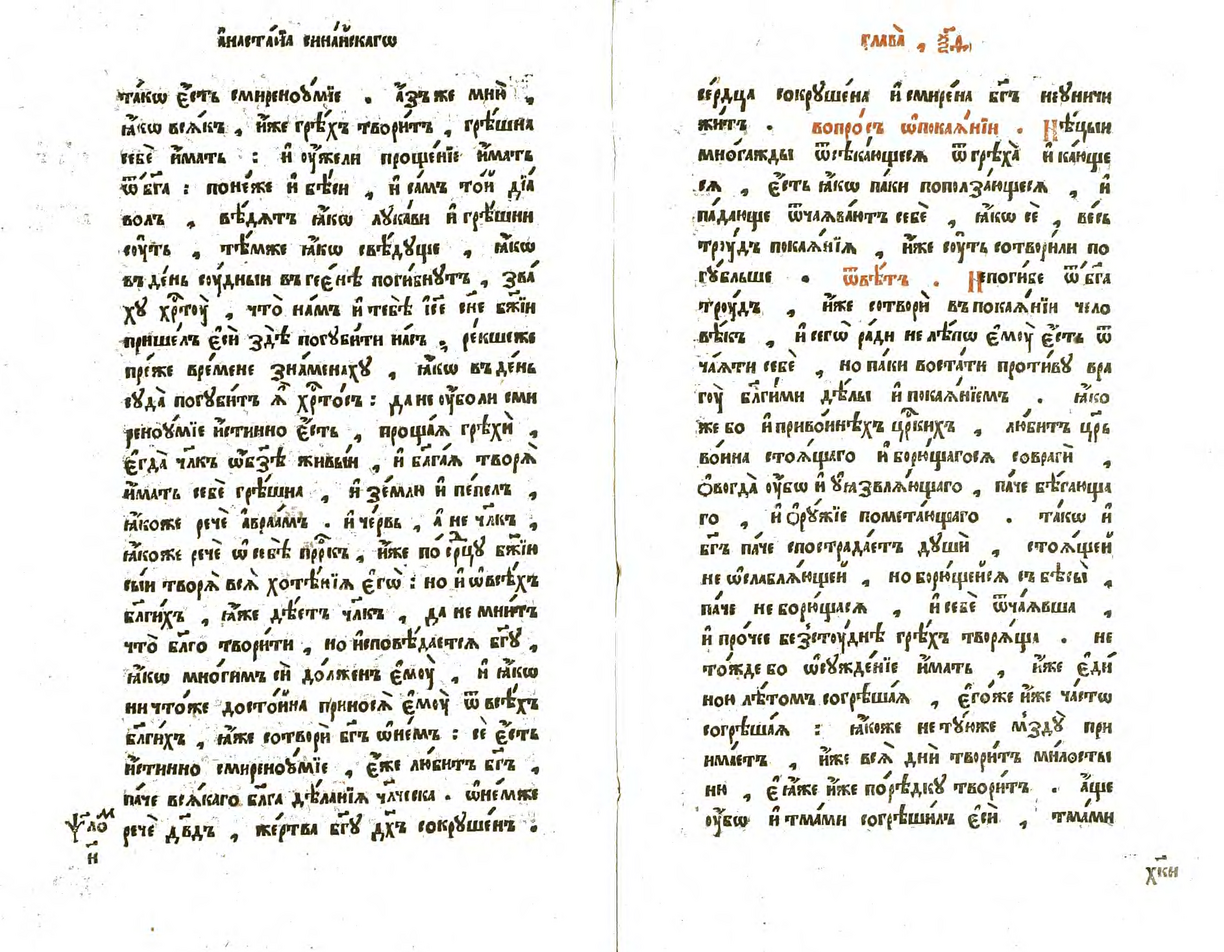 А҆наста́сїа сина́йскагѡ
та́кѡ є҆́сть смиреноꙋ́мїе . а҆́зъ же мню̀ ,
ꙗ҆́кѡ всѧ́къ , и҆́же грѣ́хъ твори́тъ , грѣ́шна
себѐ и҆́мать : и҆ ᲂу҆́жели проще́нїе и҆́мать
ѿ бг҃а : поне́же и҆ бѣ́си , и҆ са́мъ то́й дїа́
волъ , вѣ́дѧтъ ꙗ҆́кѡ лꙋка́ви и҆ грѣ́шни
сꙋ́ть , тѣ́мже ꙗ҆́кѡ свѣ́дꙋще , ꙗ҆́кѡ
въ де́нь сꙋ́дныи въ гее́нѣ поги́бнꙋтъ , зва́
хꙋ хрⷭ҇тꙋ̀ , что̀ на́мъ и҆ тебѣ̀ і҆с҃е сн҃е бж҃їи
прише́лъ є҆сѝ здѣ̀ погꙋби́ти на́съ , ре́кшеже
пре́же вре́мене зна́менахꙋ , ꙗ҆́кѡ въ де́нь
сꙋда̀ погꙋби́тъ ѧ҆̀ хрⷭ҇то́съ : да не ᲂу҆́бо ли сми
реноꙋ́мїе и҆́стинно є҆́сть , проща́ѧ грѣхѝ ,
є҆гда̀ чл҃къ ѡ҆ бз҃ѣ живы́и , и҆ бл҃га́ѧ творѧ̀
и҆́мать себѐ грѣ́шна , и҆ зе́млю и҆ пе́пелъ ,
ꙗ҆́коже речѐ а҆враа́мъ . и҆ че́рвь , а҆ не чл҃къ ,
ꙗ҆́коже речѐ ѡ҆ себѣ̀ прⷪ҇ркъ , и҆́же по срⷣцꙋ бж҃їю
сы́и творѧ̀ всѧ̀ хотѣ́нїѧ є҆гѡ̀ : но и҆ ѡ҆ всѣ́хъ
бл҃ги́хъ , ꙗ҆̀же дѣ́етъ чл҃къ , да не мни́тъ
что̀ бл҃го твори́ти , но и҆сповѣ́даетсѧ бг҃ꙋ ,
ꙗ҆́кѡ мно́гимъ сѝ до́лженъ є҆мꙋ̀ , и҆ ꙗ҆́кѡ
ничто́же досто́йна приносѧ̀ є҆мꙋ̀ ѿ всѣ́хъ
бл҃ги́хъ , ꙗ҆̀же сотворѝ бг҃ъ ѡ҆ не́мъ : сѐ є҆́сть
и҆́стинно смиреноꙋ́мїе , є҆́же лю́битъ бг҃ъ ,
па́че всѧ́каго бл҃га дѣ́ланїѧ чл҃ческа . ѡ҆ не́мже
речѐ дв҃дъ , же́ртва бг҃ꙋ дх҃ъ сокрꙋше́нъ .
ѱало́м
н҃
глава̀ , ѯ҃д
се́рдца сокрꙋше́на и҆ смире́на бг҃ъ не ᲂу҆ничи
жи́тъ . вопро́съ ѡ҆ покаѧ́нїи . Нѣ́цыи
мно́гажды ѿсѣка́ющесѧ ѿ грѣха̀ и҆ ка́юще
сѧ , є҆́сть ꙗ҆́кѡ па́ки поползаю́щесѧ , и҆
па́дающе ѿчаѧва́ютъ себѐ , ꙗ҆́кѡ сѐ , ве́сь
трꙋ́дъ покаѧ́нїѧ , и҆́же сꙋ́ть сотвори́ли по
гꙋ́бльше . ѿвѣ́тъ . Не поги́бе ѿ бг҃а
трꙋ́дъ , и҆́же сотворѝ въ покаѧ́нїи чело
вѣ́къ , и҆ сегѡ̀ ра́ди не лѣ́пѡ є҆мꙋ̀ є҆́сть ѿ
ча́ѧти себѐ , но па́ки воста́ти проти́вꙋ вра
гꙋ̀ бл҃ги́ми дѣ́лы и҆ покаѧ́нїемъ . ꙗ҆́ко
же бо и҆ при во́инѣхъ цр҃кихъ , лю́битъ цр҃ь
во́ина стоѧ́щаго и҆ борю́щагосѧ со врагѝ ,
ѻ҆вогда̀ ᲂу҆́бѡ и҆ ᲂу҆ѧзвлѧ́ющаго , па́че бѣ́гающа
го , и҆ ѻ҆рꙋ́жїе помета́ющаго . та́кѡ и҆
бг҃ъ па́че спострада́етъ дꙋшѝ , стоѧ́щей
не ѡ҆слаблѧ́ющей , но борю́щейсѧ съ бѣсы̀ ,
па́че не борю́щаѧсѧ , и҆ себѐ ѿча́ѧвша ,
и҆ про́чее безстꙋ́днѣ грѣ́хъ творѧ́ща . не
то́жде бо ѡ҆сꙋжде́нїе и҆́мать , и҆́же є҆ди́
ною лѣ́томъ согрѣша́ѧ , є҆го́же и҆́же ча́стѡ
согрѣша́ѧ : ꙗ҆́коже не тꙋ́юже мздꙋ̀ при
и́маетъ , и҆́же всѧ̀ днѝ твори́тъ ми́лосты
ни , є҆ꙗ҆́же и҆́же по рѣ́дкꙋ твори́тъ . а҆́ще
ᲂу҆́бѡ и҆ тма́ми согрѣши́лъ є҆сѝ , тма́ми
хк҃и